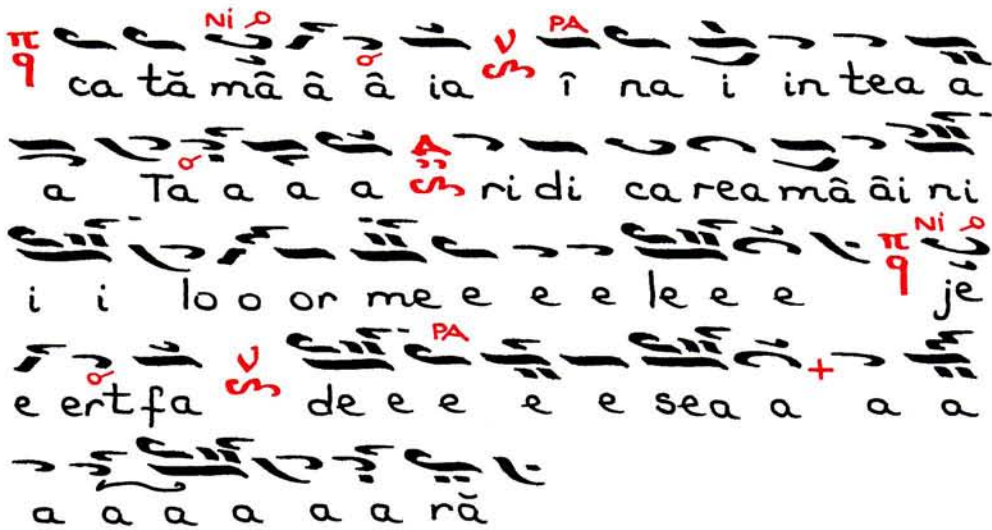 π q Ni ν PA
ca tă mâ â â ia î na i in tea a
Δ
a Ta a a a ri di ca rea mâ âi ni
π q Ni
i i lo o or me e e e le e e je
ν PA
e ert fa de e e e e sea a a a
a a a a a a ră